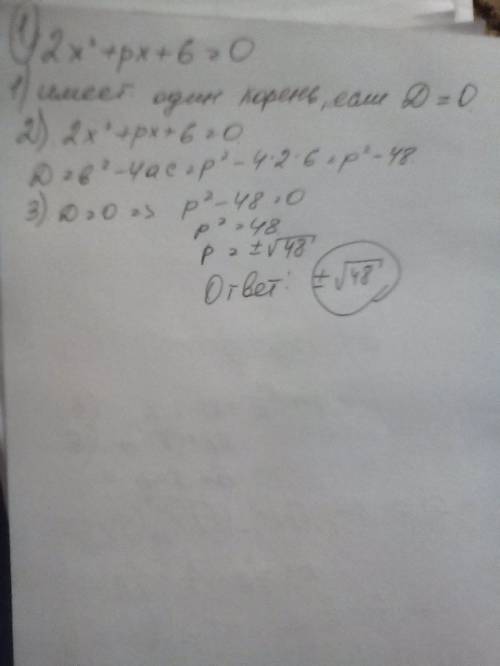 1) 2x²+px+6=0
1) имеет один корень, если D=0
2) 2x²+px+6=0
D=в²-4ac=p²-4·2·6=p²-48
3) D=0=> p²-48=0
p²=48
p=±√48
Ответ: ±√48